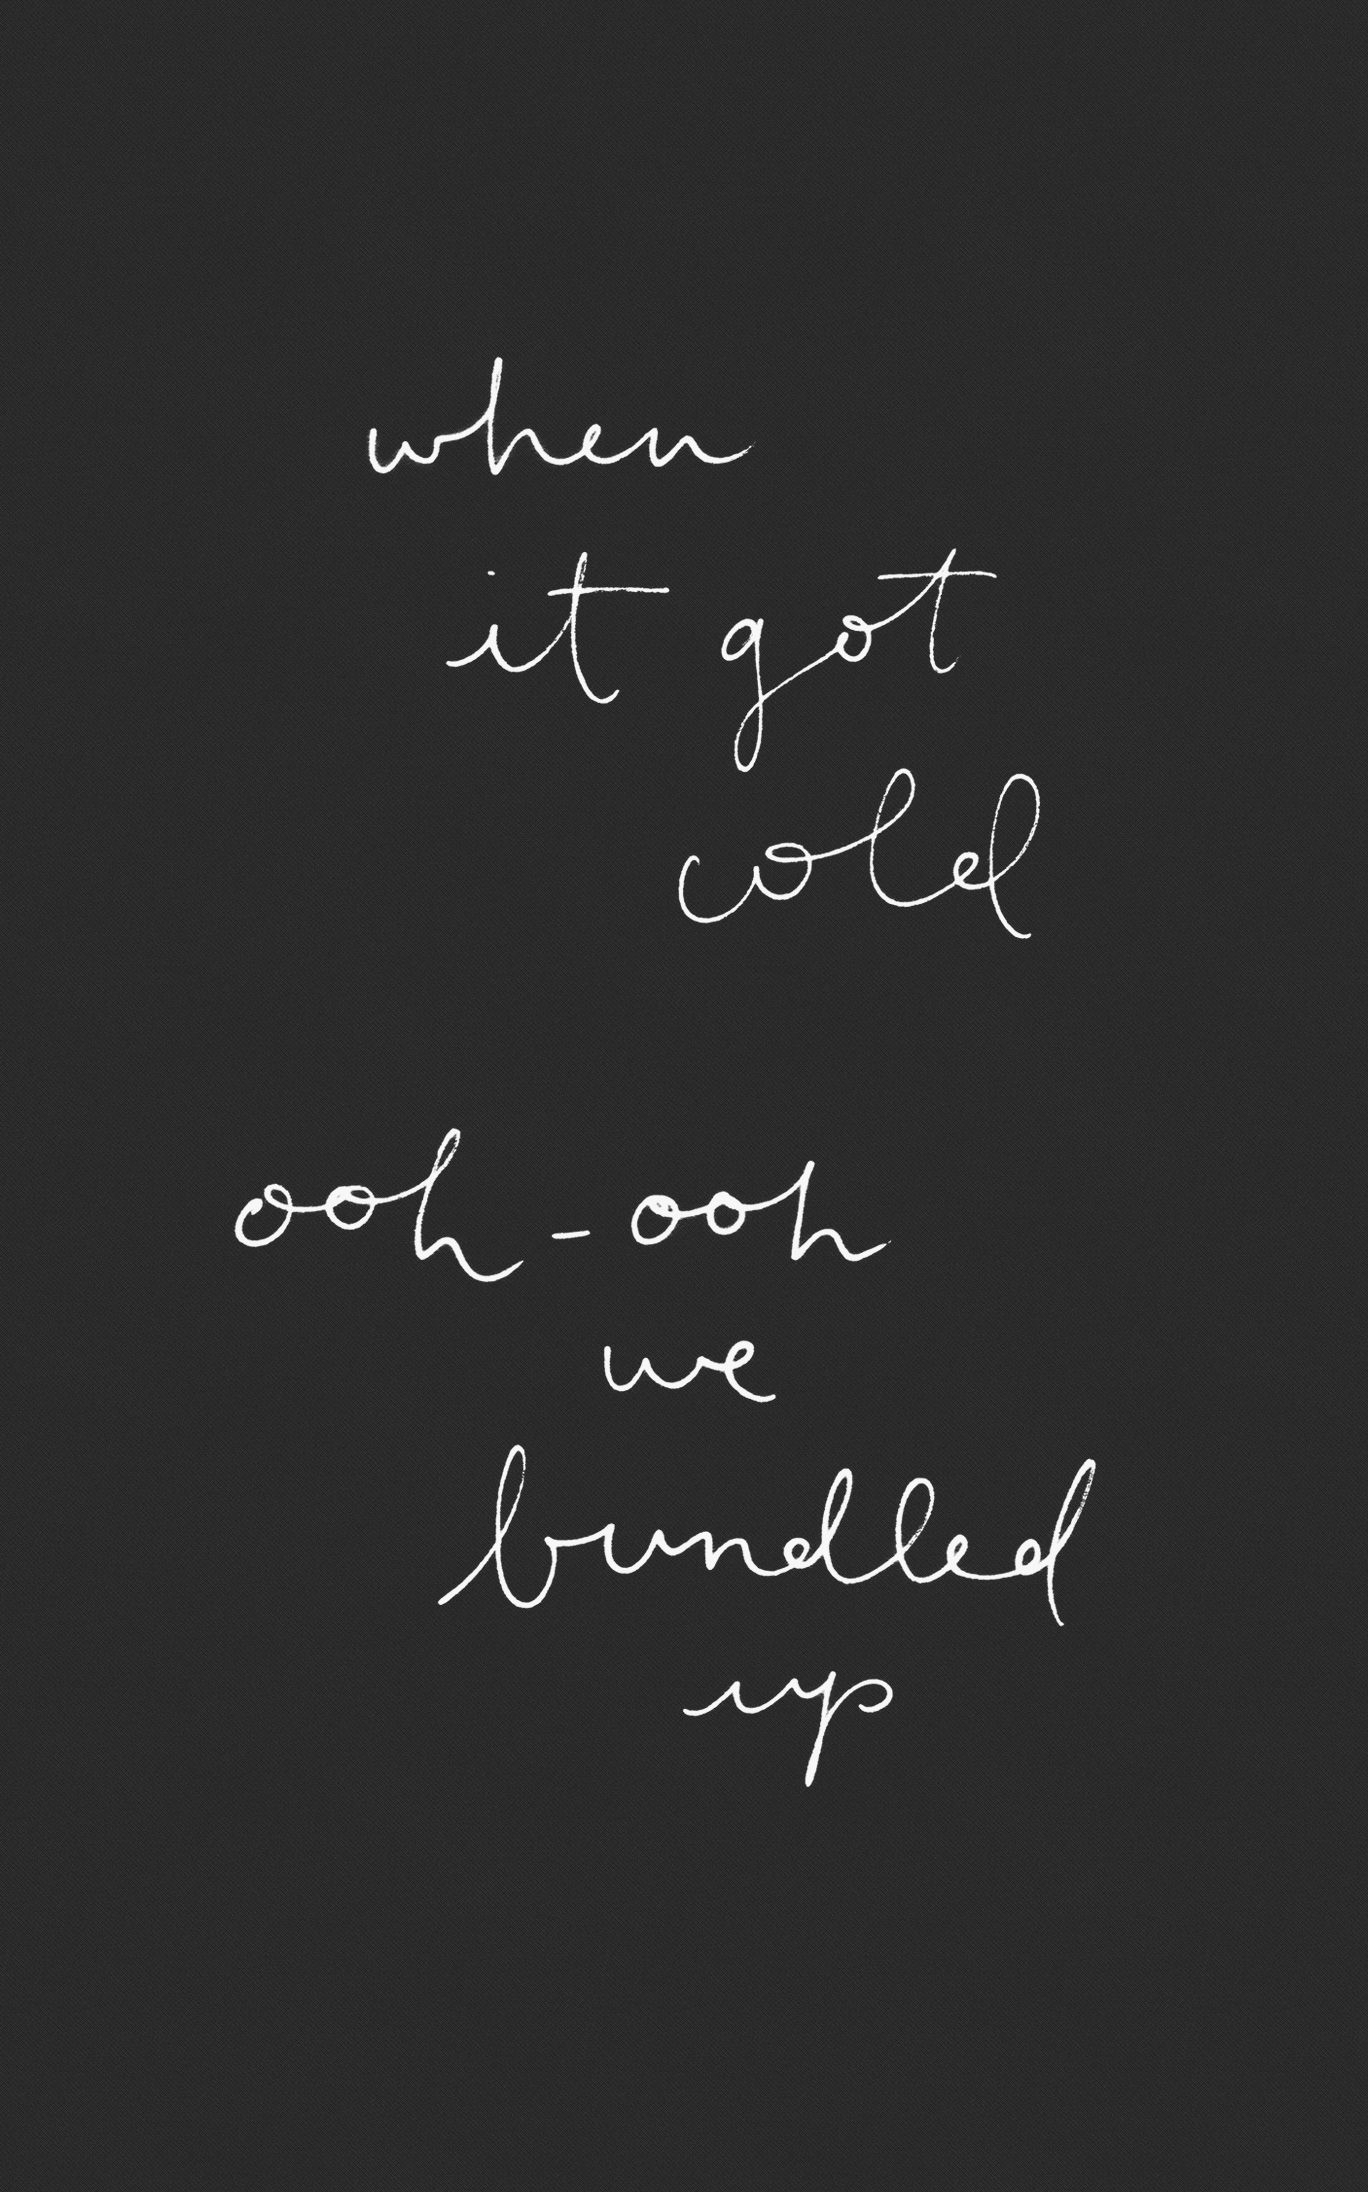 when
it got
cold
ooh-ooh
we
bundled
up